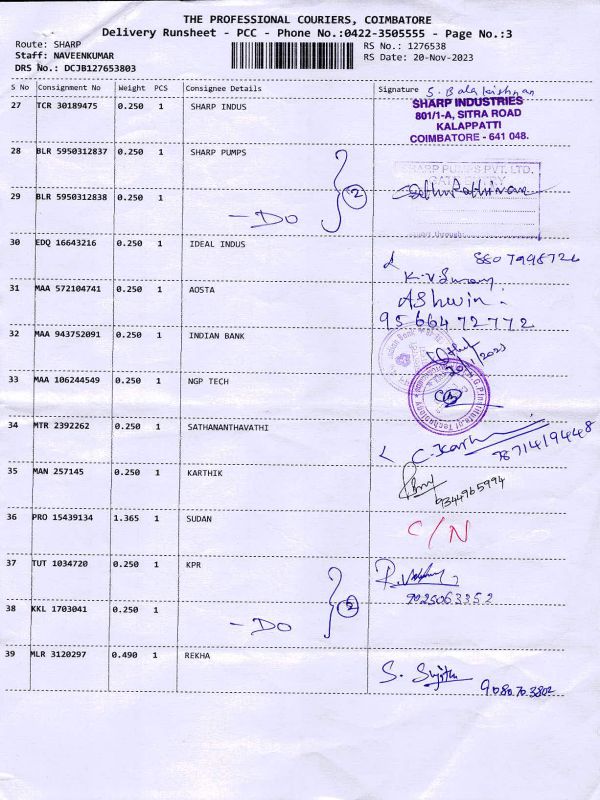 THE PROFESSIONAL COURIERS, COIMBATORE
Delivery Runsheet - PCC - Phone No.:0422-3505555 - Page No.:3
Route: SHARP
RS No.: 1276538
Staff: NAVEENKUMAR
RS Date: 20-Nov-2023
DRS No.: DCJB127653803
S No Consignment No Weight PCS Consignee Details Signature S. Balakrishnan
27 TCR 30189475 0.250 1 SHARP INDUS
SHARP INDUSTRIES
801/1-A, SITRA ROAD
KALAPPATTI
COIMBATORE - 641 048.
28 BLR 5950312837 0.250 1 SHARP PUMPS
SHARP PUMPS PVT. LTD.
29 BLR 5950312838 0.250 1
- DO
2
30 EDQ 16643216 0.250 1 IDEAL INDUS
31 MAA 572104741 0.250 1 AOSTA
Ashwin.
9566472772
32 MAA 943752091 0.250 1 INDIAN BANK
33 MAA 106244549 0.250 1 NGP TECH
34 MTR 2392262 0.250 1 SATHANANTHAVATHI
8714194448
35 MAN 257145 0.250 1 KARTHIK
9344965994
36 PRO 15439134 1.365 1 SUDAN
C/N
37 TUT 1034720 0.250 1 KPR
9025063352
38 KKL 1703041 0.250 1
- DO
2
39 MLR 3120297 0.490 1 REKHA
S. Sujitha
9080703802